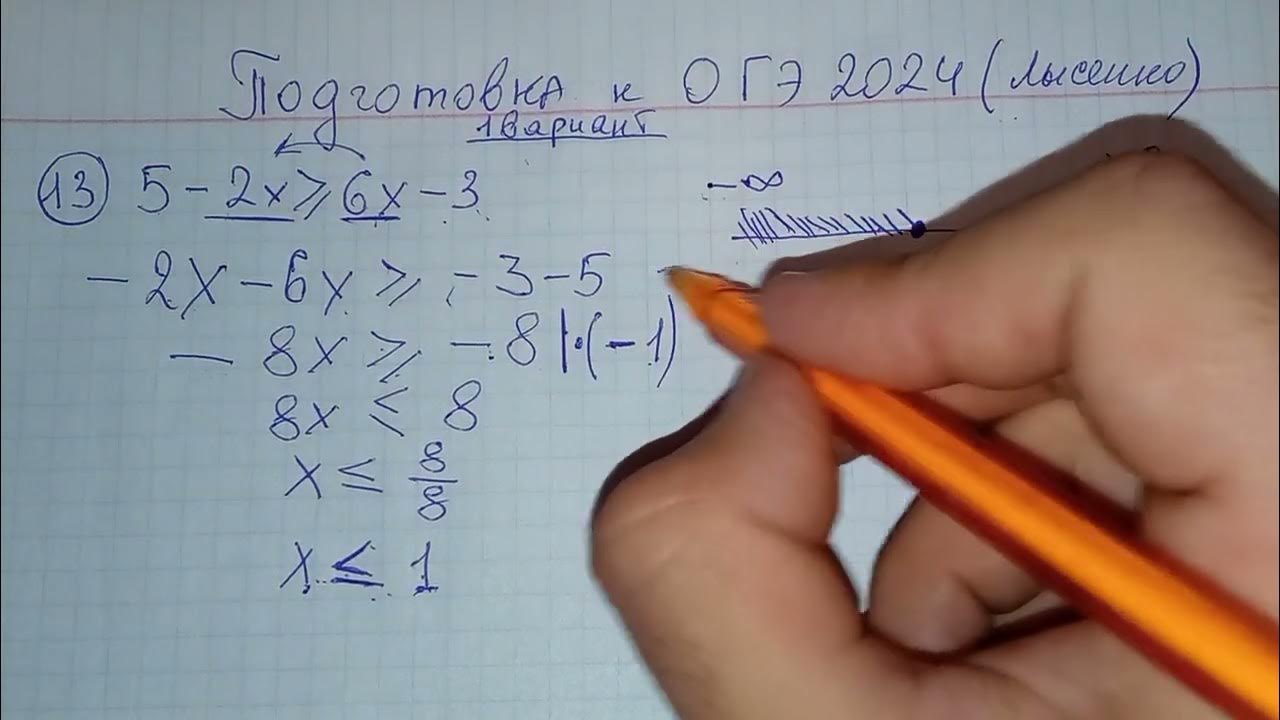 Подготовка к ОГЭ 2024 (Лысенко)
1 вариант
13 5 - 2x ≥ 6x - 3
- 2x - 6x ≥ - 3 - 5
- 8x ≥ - 8 |·(-1)
8x ≤ 8
x ≤ 8/8
x ≤ 1
-∞